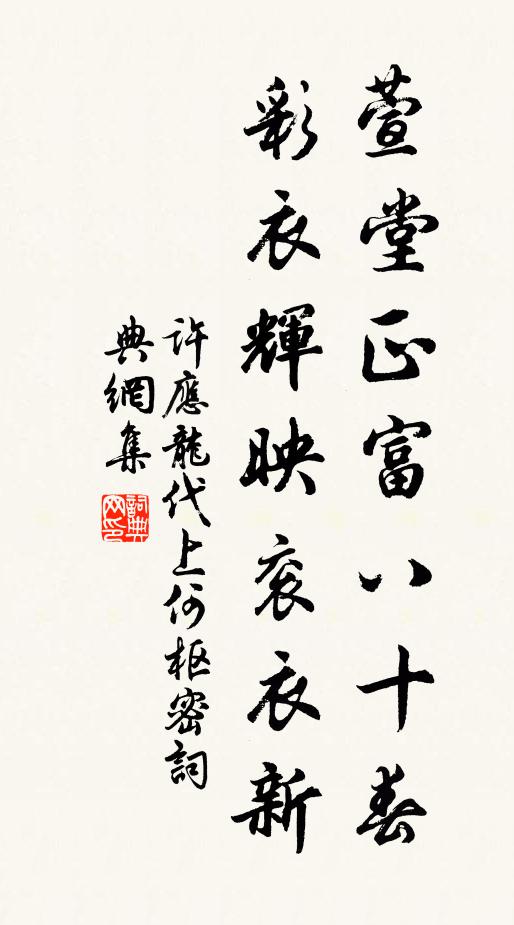 萱堂正富八十春
彩衣輝映衮衣新
許應龍代上何樞密詞
典網集
詞典网印